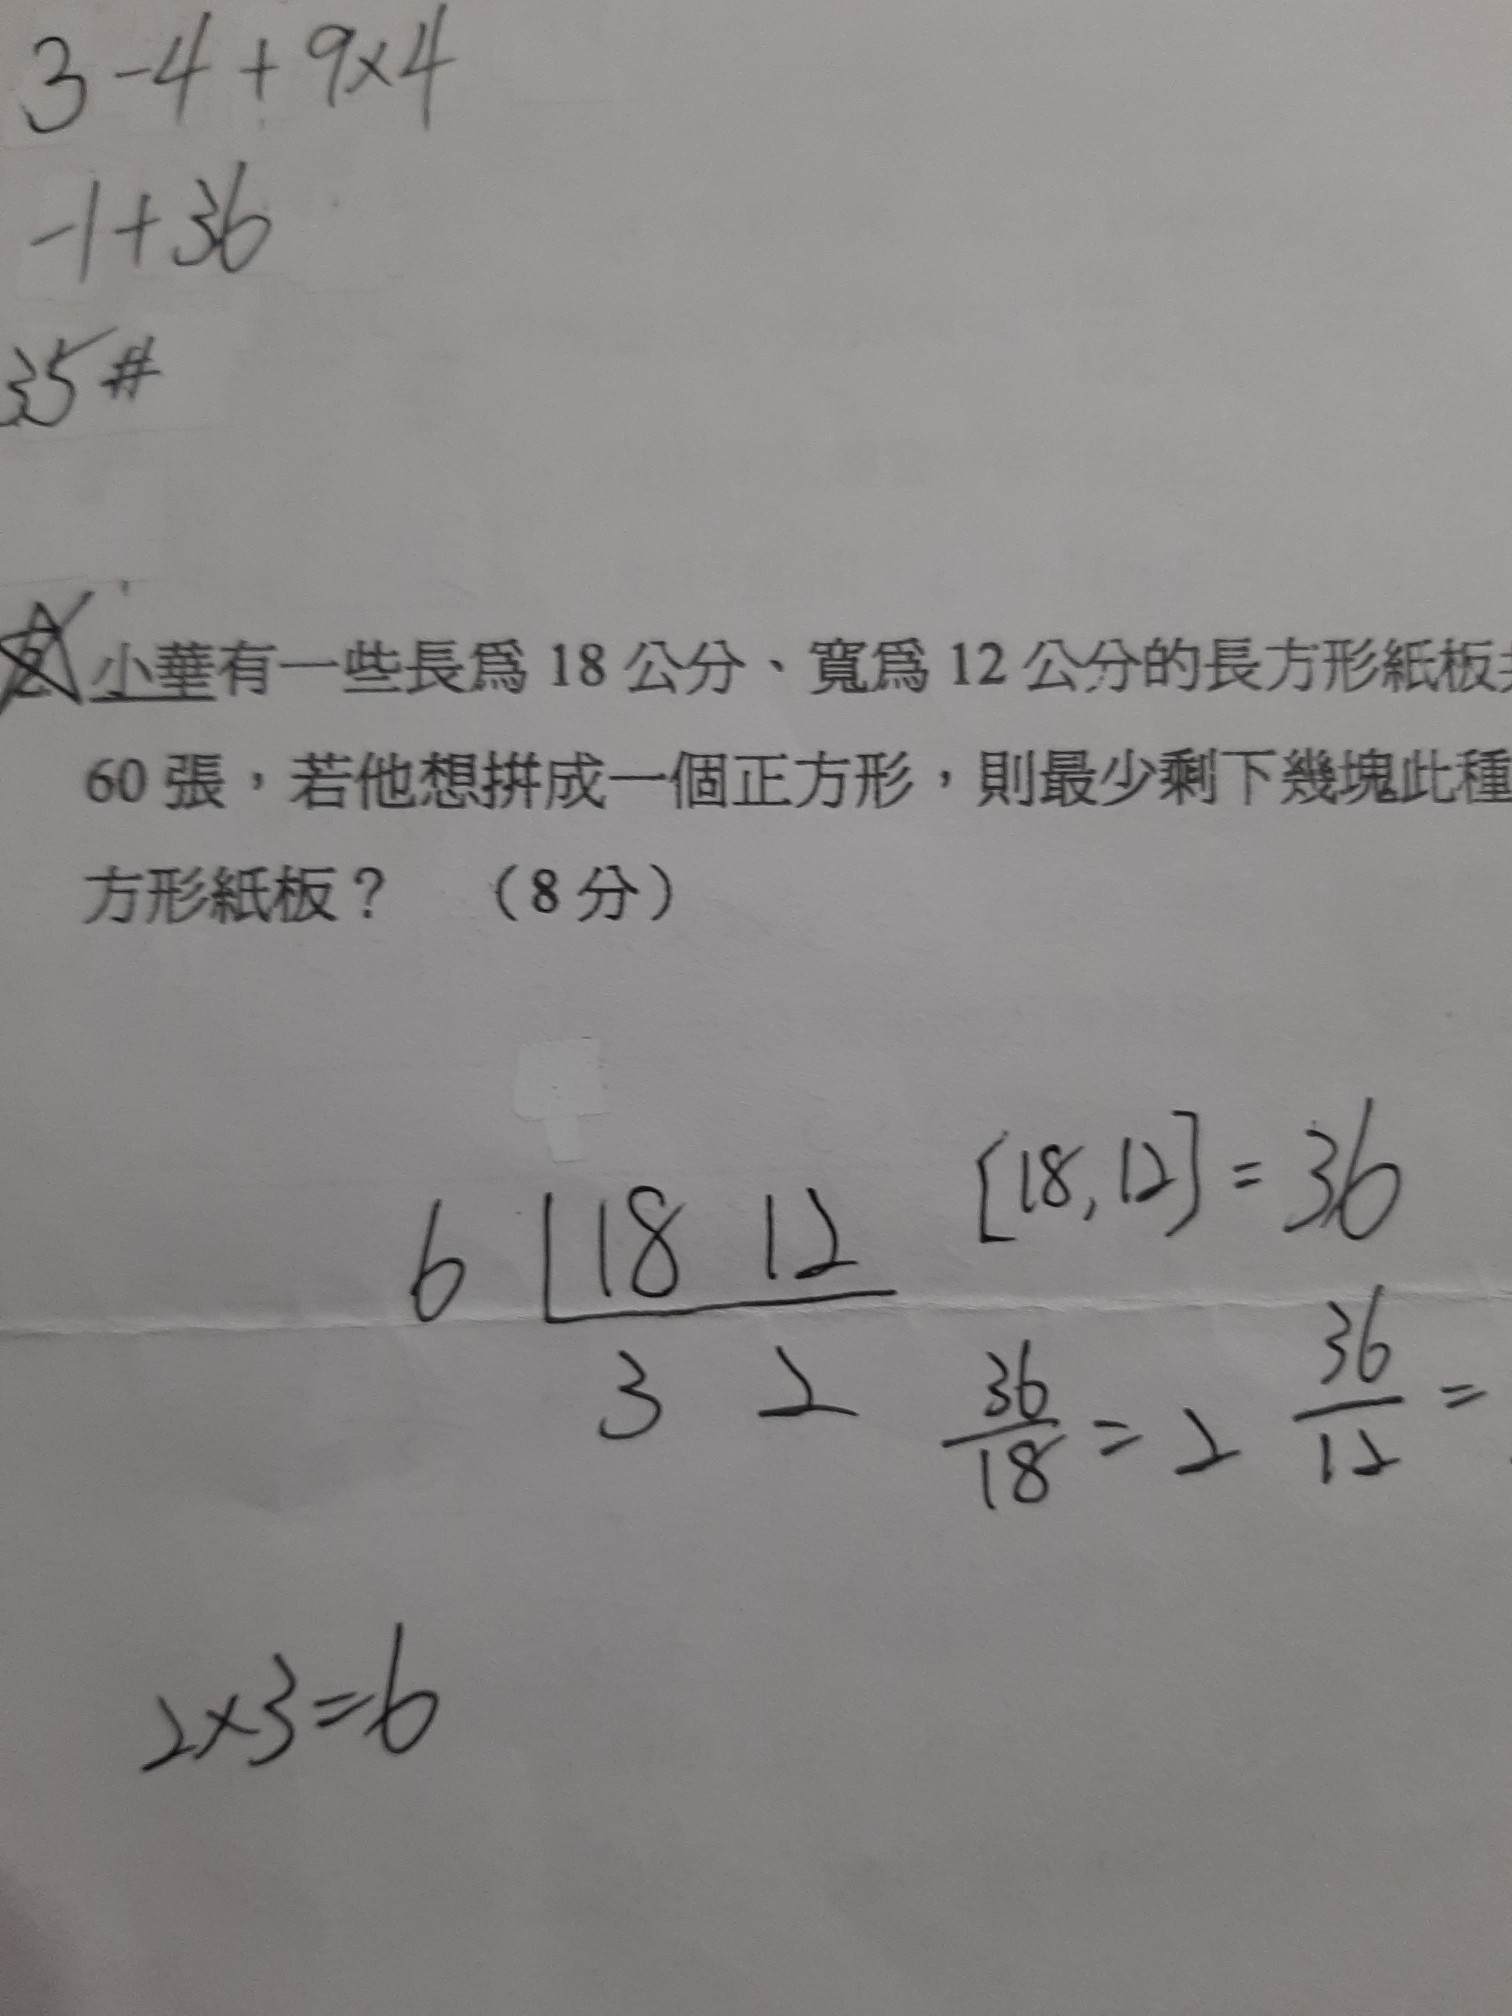 3-4+9×4
-1+36
35#
小華有一些長為 18 公分、寬為 12 公分的長方形紙板
60 張,若他想拼成一個正方形,則最少剩下幾塊此種
方形紙板? (8 分)
[18,12]=36
6 18 12
3 2
36/18=2 36/12=
2×3=6